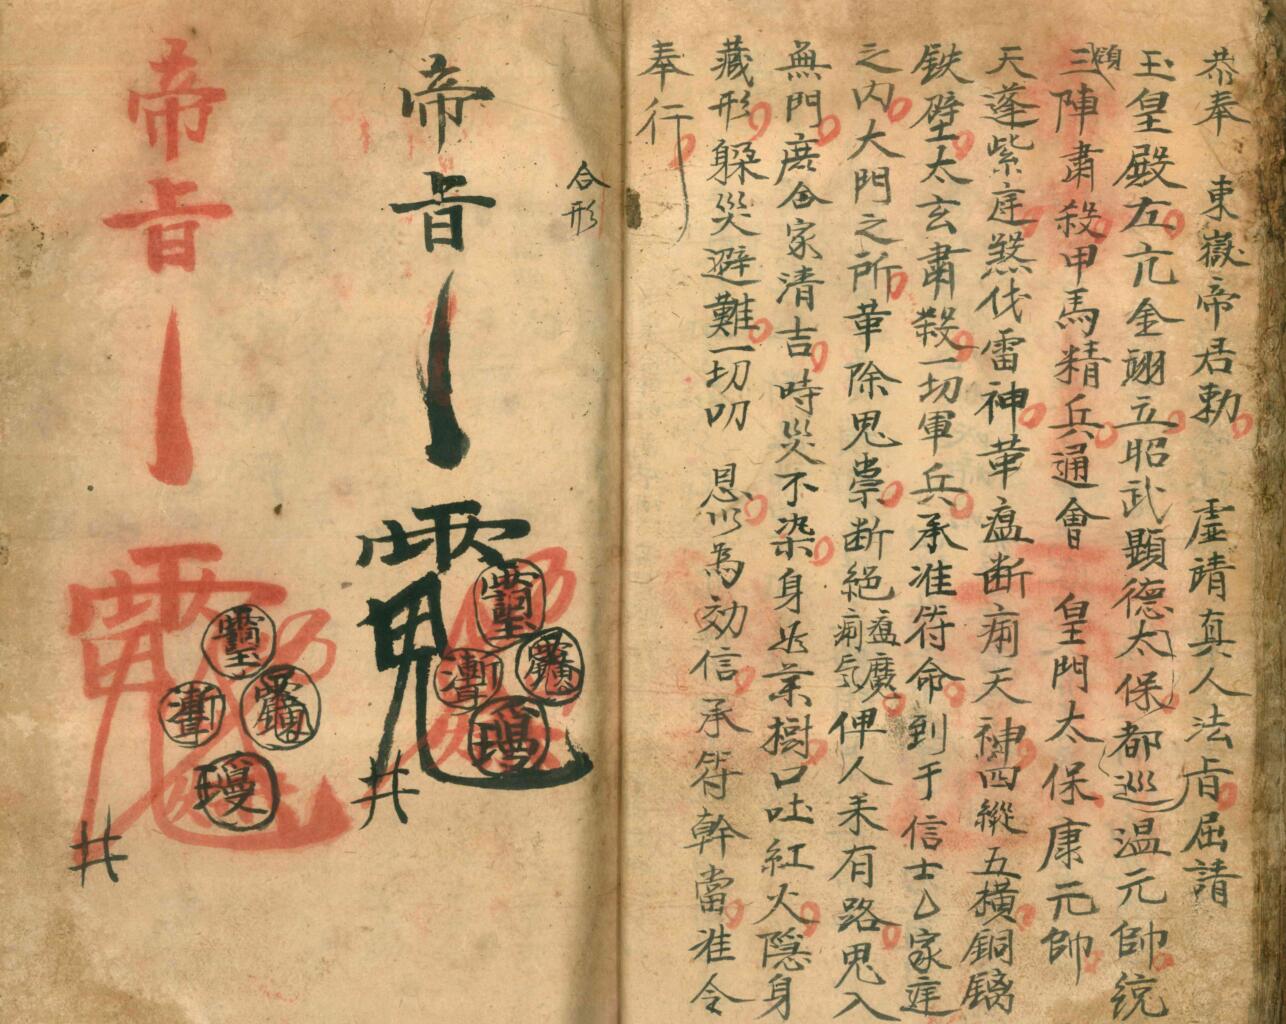 恭奉 東嶽帝君勅 虛靖真人法旨屈請
玉皇殿左亢金翊立昭武顯德太保都巡温元帥統
領三陣肅殺甲馬精兵通會 皇門太保康元帥
天蓬紫庭煞伐雷神革瘟断痢天神四縱五横銅
鉄壁太玄肅殺一切軍兵承准符命到于信士厶家庭
之内大門之所革除鬼祟断絕瘟痢氣俾人来有路鬼入
無門庶令家清吉時災不染身 樹口吐紅火隱身
藏形躲災避難一切叨 恩以為効信承符幹當准令
奉行
合形
帝旨
帝旨